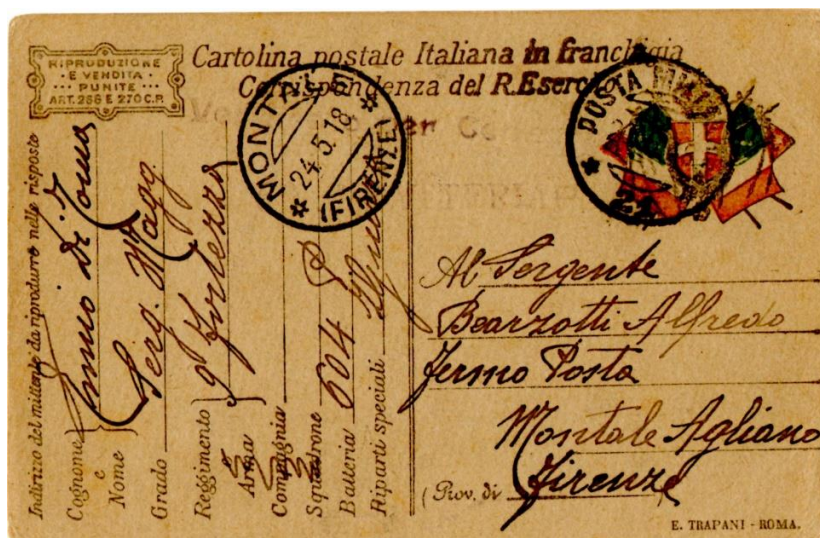 RIPRODUZIONE
E VENDITA
PUNITE
ART. 286 E 270 C.P.
Cartolina postale Italiana in franchigia
Corrispondenza del R. Esercito
MONTALE
24.5.18
(FIRENZE)
POSTA MILITARE
22
Indirizzo del mittente da riprodurre nelle risposte
Cognome
e
Nome
Grado Serg. Magg.
Reggimento 9° Fortezza
Arma
Compagnia
Squadrone
Batteria 604
Riparti speciali
Al Sergente
Bearzotti Alfredo
Fermo Posta
Montale Agliana
(Prov. di Firenze
E. TRAPANI - ROMA.